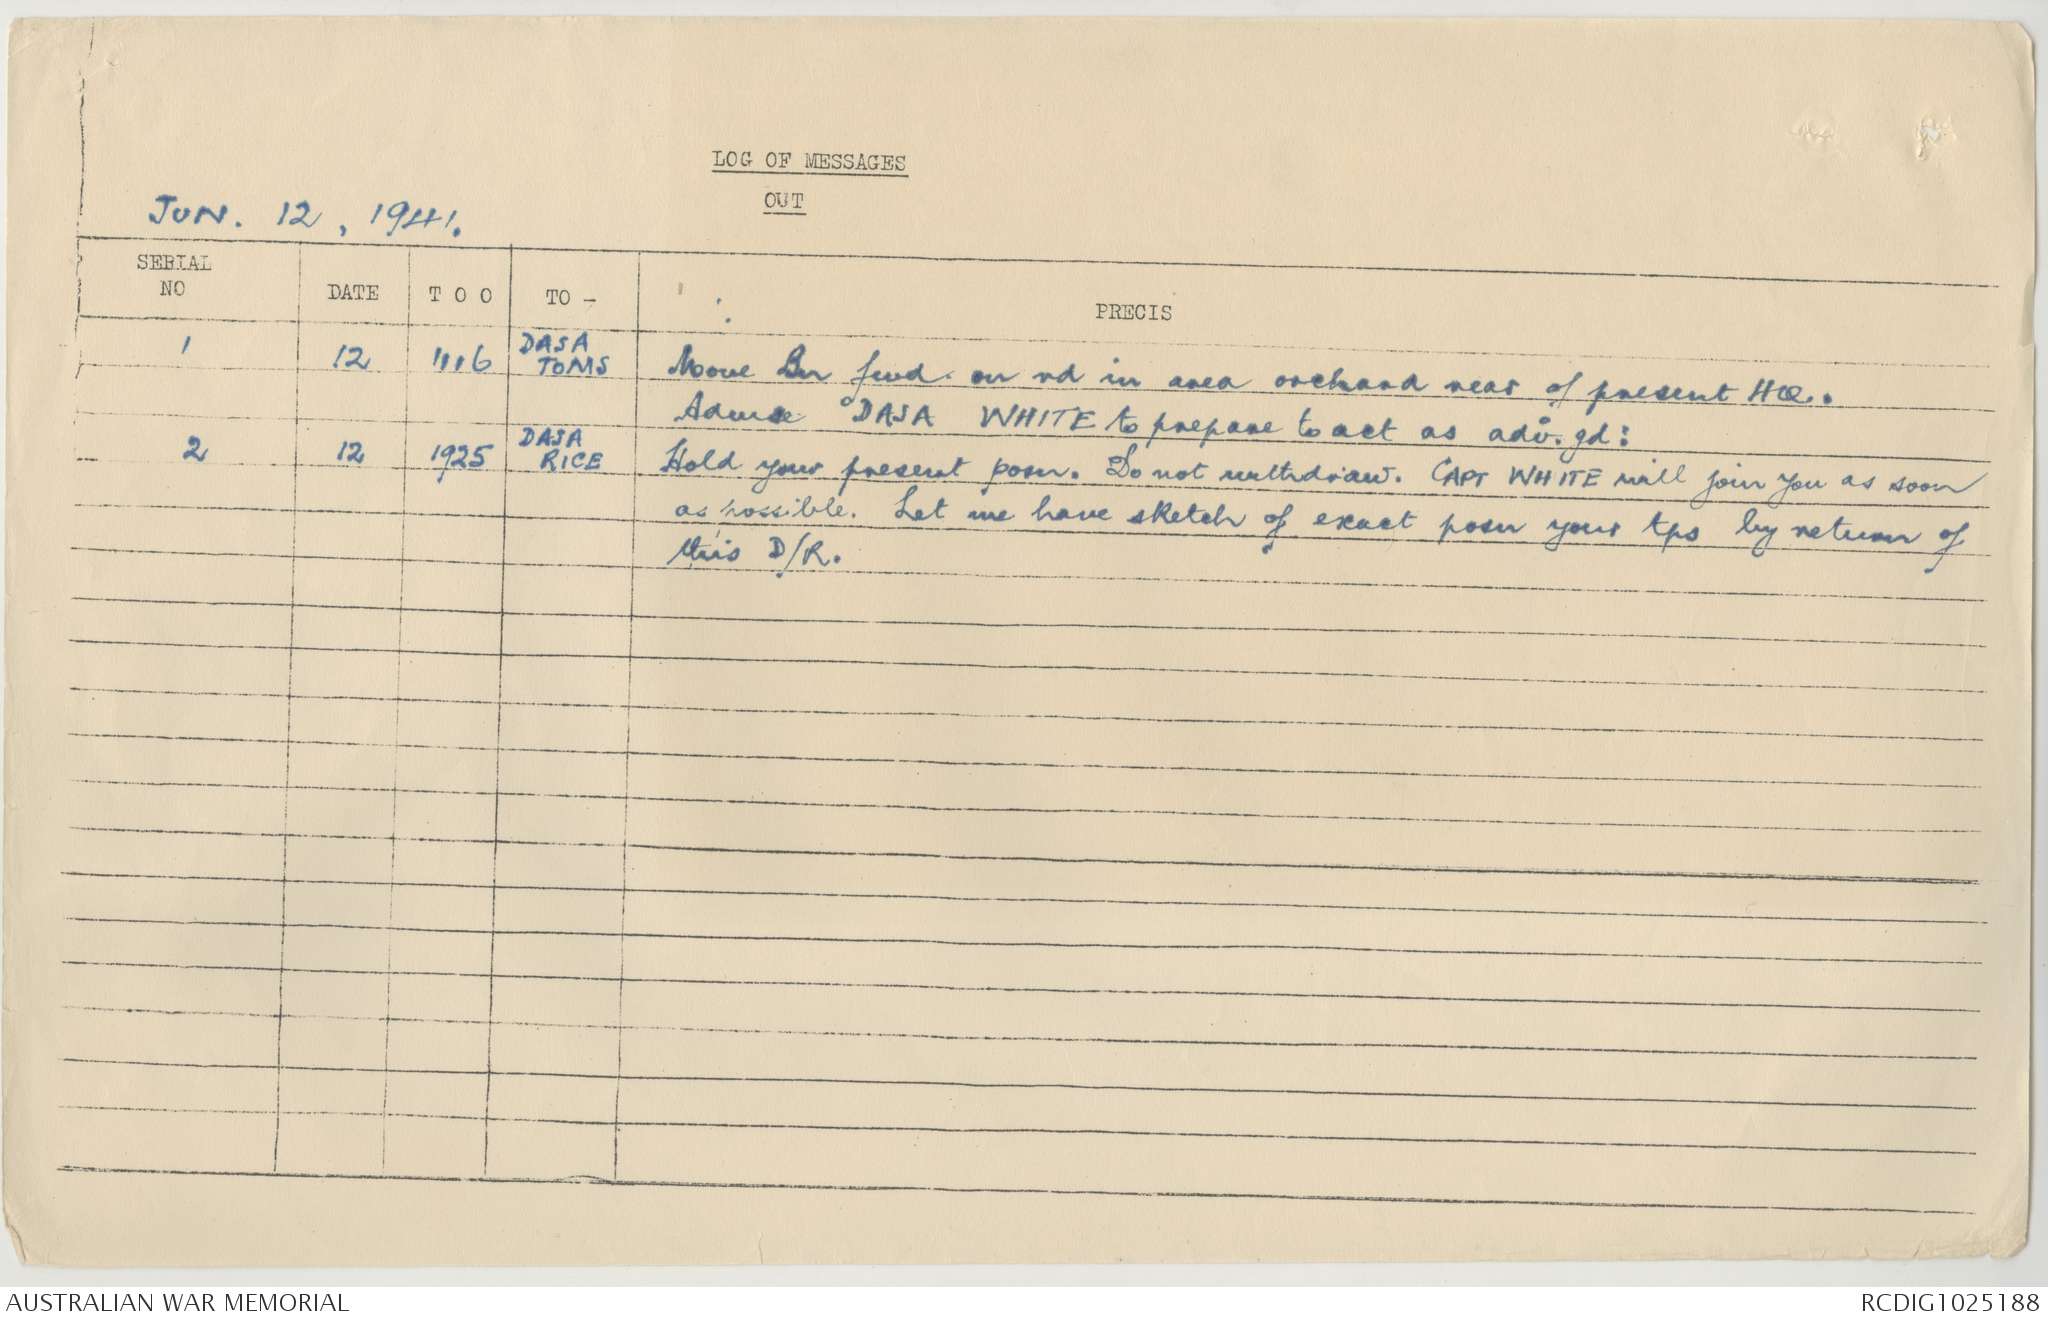 LOG OF MESSAGES
OUT
JUN. 12, 1941.
SERIAL NO DATE T O O TO - PRECIS
1 12 1116 DASA TOMS Move Bn fwd. on rd in area orchard near of present HQ..
Advise DASA WHITE to prepare to act as adv. gd:
2 12 1925 DASA RICE Hold your present posn. Do not withdraw. CAPT WHITE will join you as soon
as possible. Let me have sketch of exact posn your tps by return of
this D/R.
AUSTRALIAN WAR MEMORIAL RCDIG1025188